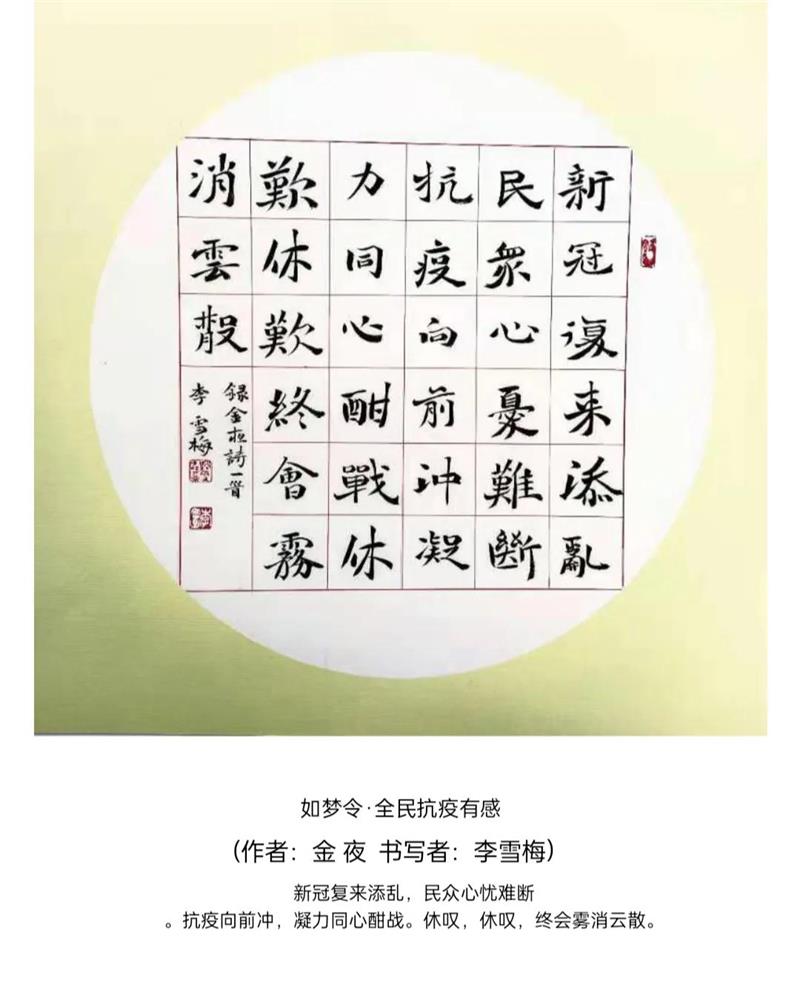 新冠復来添亂
民衆心憂難斷
抗疫向前冲凝
力同心酣戰休
歎休歎終會霧
消雲散
録金夜詩一首
李雪梅
如梦令·全民抗疫有感
（作者：金 夜 书写者：李雪梅）
新冠复来添乱，民众心忧难断
。抗疫向前冲，凝力同心酣战。休叹，休叹，终会雾消云散。